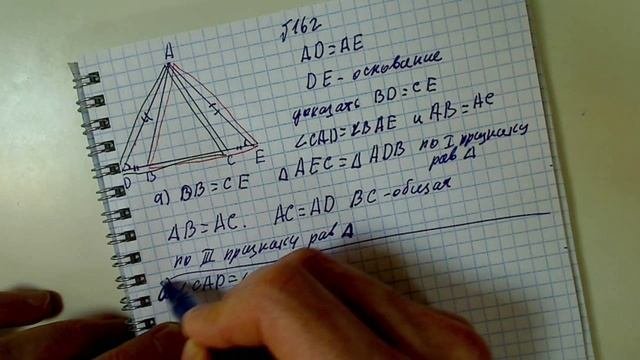 п162
A
D B C E
AD = AE
DE - основание
доказать BD = CE
∠CAD = ∠BAE и AB = AC
△AEC = △ADB по I признаку
рав △
а) DB = CE
AB = AC. AC = AD BC - общая
по III признаку рав △
∠CAD =